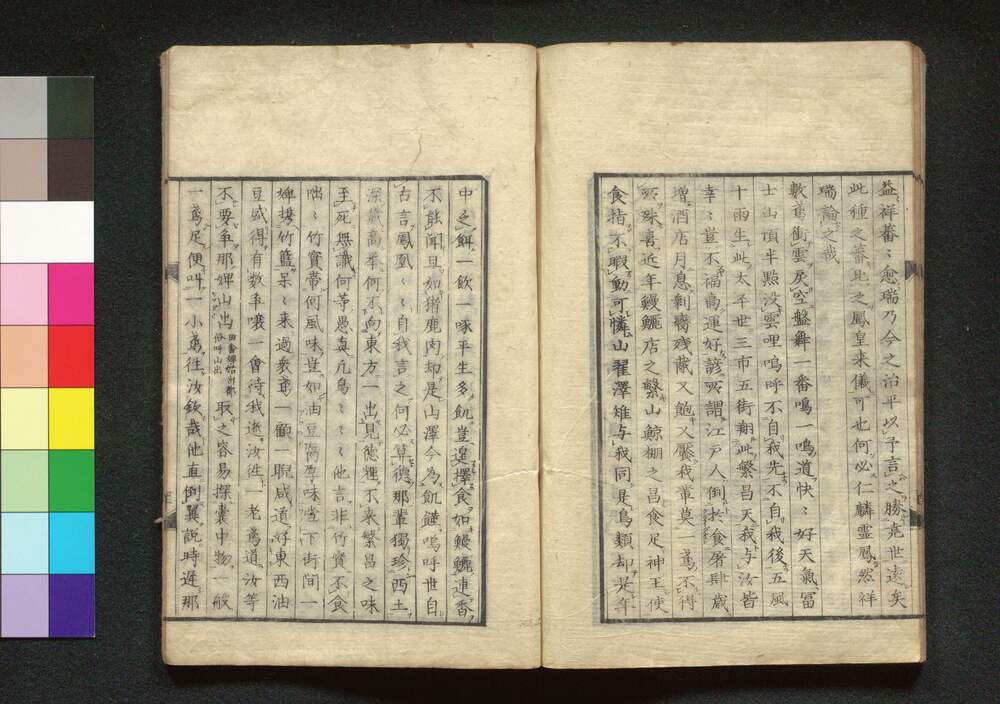 益祥蕃〻愈瑞乃今之治平以予言之勝堯世遠矣
此種之蕃比之鳳皇来儀可也何必仁麟霊鳳然祥
瑞論之哉
数鳶衝雲戻空盤舞一番鳴一鳴道快〻好天気冨
士山頂半點没雲哩嗚呼不自我先不自我後五風
十雨生此太平世三市五街翔此繁昌天我与汝皆
幸〻豈不福鳥運好諺所謂江戸人倒於食屠肆歳
増酒店月息剰臠残胾又飽又饜我輩莫一鳶不得
所殊喜近年鰻鱺店之繫山鯨棚之昌食足神王使
食指不暇動可憐山翟澤雉与我同是鳥類却
中之餌一飲一啄平生多飢豈遑擇食如鰻鱺連香
不能聞且如猪鹿肉却是山澤今為飢饉嗚呼世自
古言鳳凰〻〻自我言之何必算徳那輩獨珍西土
深蔵高挙何不向東方一出見徳輝不来繁昌之味
至死無識何等愚真凡鳥〻〻〻他言非竹實不食
咄〻竹實帯何風味豈如油豆腐味嘡下街間一
婢携竹籃呆〻来過衆鳶一顧一睨咸道好東西油
豆盛得有数争哦一會待我逝汝徃一老鳶道汝等
不要争那婢山出田舎婢始出都俗呼山出取之容易探嚢中物一般
一鳶足便叫一小鳶徃汝欽哉他直倒翼説時遅那